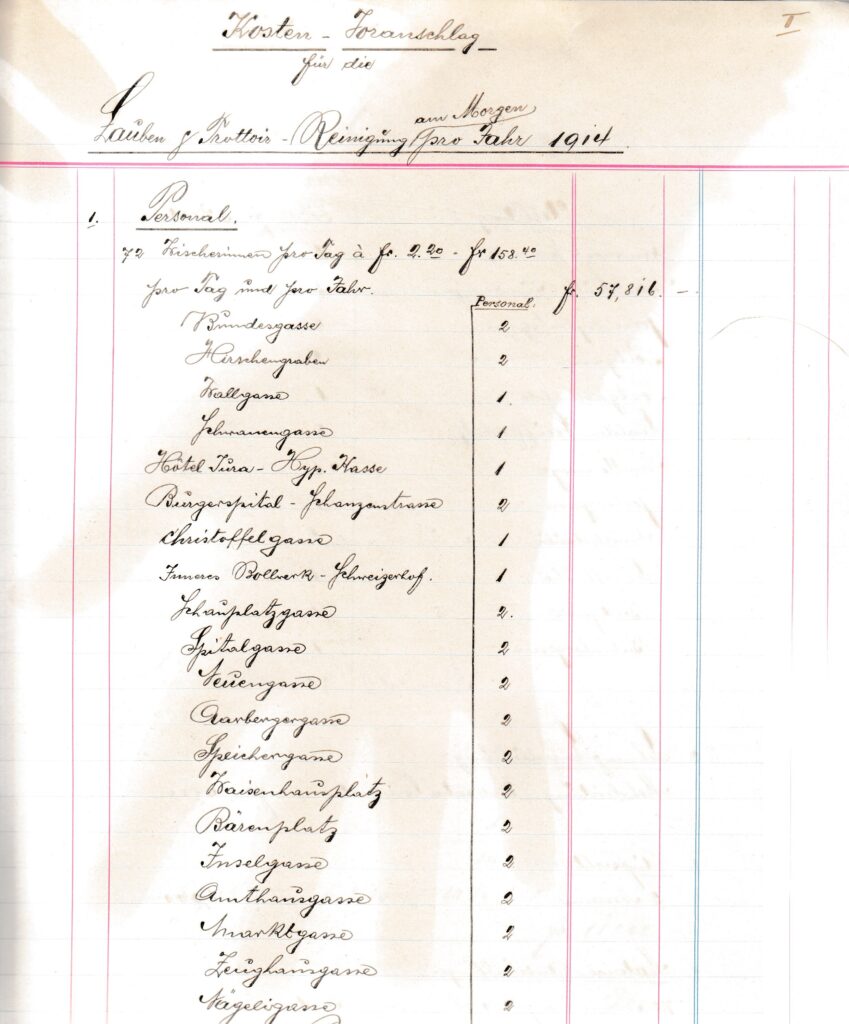 I
Kosten - Voranschlag
für die
am Morgen
Lauben & Trottoir - Reinigung pro Jahr 1914
1. Personal.
72 Wischerinnen pro Tag à fr. 2.20 - fr 158.40
pro Tag und pro Jahr. fr. 57,816. —
Personal.
Bundesgasse 2
Hirschengraben 2
Wallgasse 1.
Schwanengasse 1
Hôtel Jura - Hyp. Kasse 1
Burgerspital - Schanzenstrasse 2
Christoffelgasse 1
Inneres Bollwerk - Schweizerhof. 1
Schauplatzgasse 2.
Spitalgasse 2
Neuengasse 2
Aarbergergasse 2
Speichergasse 2
Waisenhausplatz 2
Bärenplatz 2
Inselgasse 2
Amthausgasse 2
Marktgasse 2
Zeughausgasse 2
Nägeligasse 2